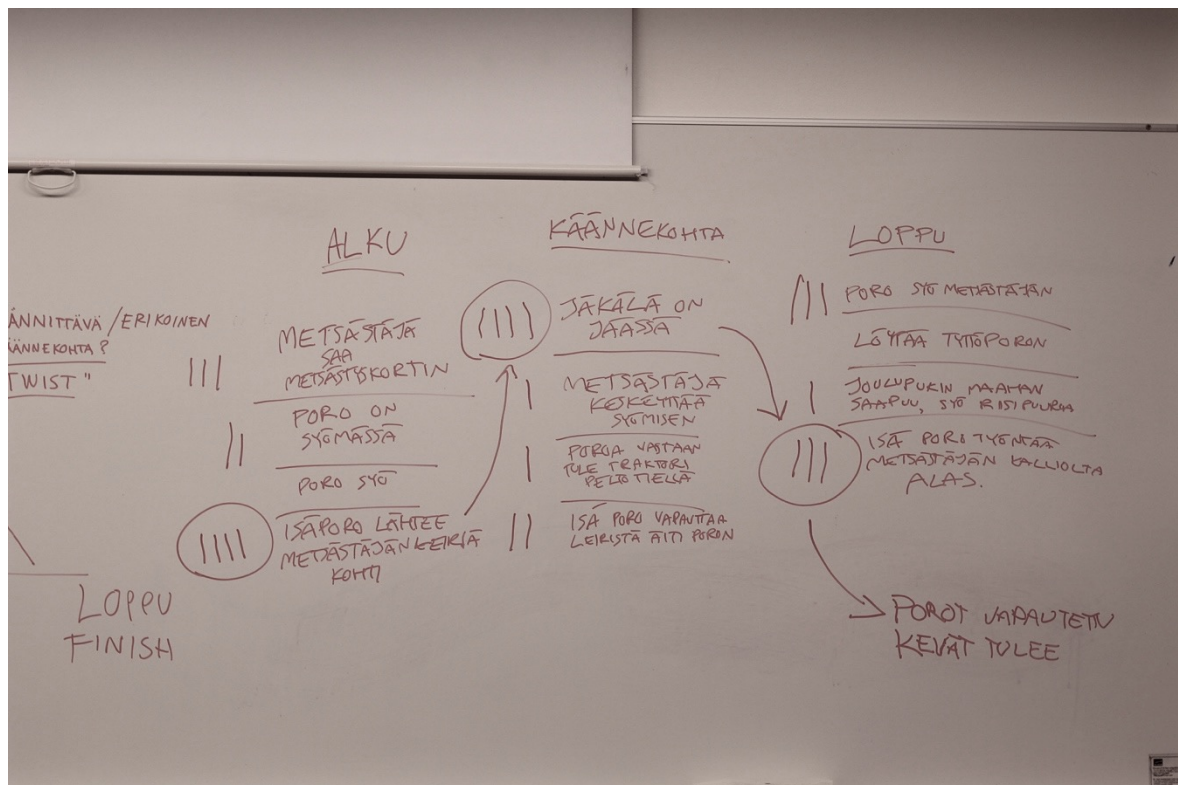 ÄNNITTÄVÄ / ERIKOINEN
ÄÄNNEKOHTA?
TWIST"
LOPPU
FINISH
ALKU
METSÄSTÄJÄ
SAA
METSÄSTYSKORTIN
PORO ON
SYÖMÄSSÄ
PORO SYÖ
ISÄPORO LÄHTEE
METSÄSTÄJÄN LEIRIÄ
KOHTI
KÄÄNNEKOHTA
JÄKÄLÄ ON
JÄÄSSÄ
METSÄSTÄJÄ
KESKEYTTÄÄ
SYÖMISEN
POROA VASTAAN
TULE TRAKTORI
PELTOTIELLÄ
ISÄ PORO VAPAUTTAA
LEIRISTÄ ÄITI PORON
LOPPU
PORO SYÖ METSÄSTÄJÄN
LÖYTÄÄ TYTTÖPORON
JOULUPUKIN MAAHAN
SAAPUU, SYÖ RIISIPUUROA
ISÄ PORO TYÖNTÄÄ
METSÄSTÄJÄN KALLIOLTA
ALAS.
POROT VAPAUTETTU
KEVÄT TULEE